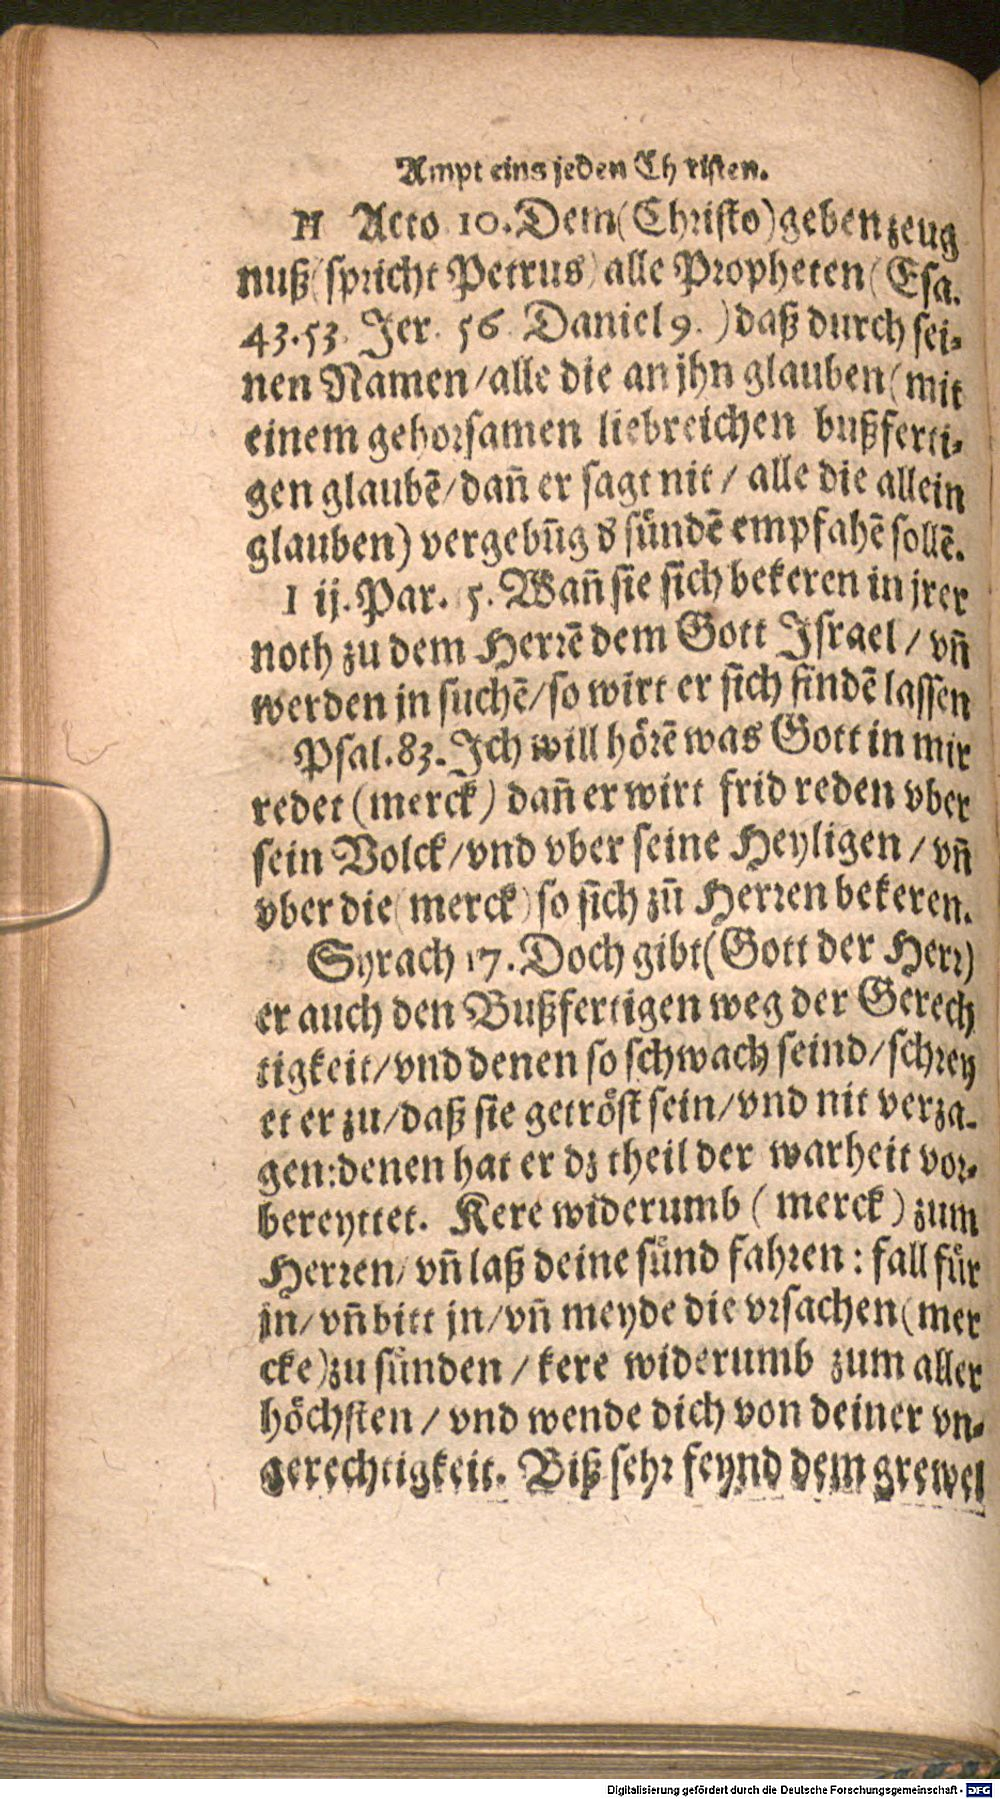 Ampt eins jeden Christen.
H Acto 10. Dem (Christo) geben zeug
nuß (spricht Petrus) alle Propheten (Esa.
43.53. Jer. 56. Daniel 9.) daß durch sei-
nen Namen / alle die an jhn glauben (mit
einem gehorsamen liebreichen bußferti-
gen glaubẽ / dañ er sagt nit / alle die allein
glauben) vergebũg d sündẽ empfahẽ sollẽ.
I ij. Par. 5. Wañ sie sich bekeren in jrer
noth zu dem Herrẽ dem Gott Israel / vñ
werden jn suchẽ / so wirt er sich findẽ lassen
Psal. 83. Ich will hörẽ was Gott in mir
redet (merck) dañ er wirt frid reden vber
sein Volck / vnd vber seine Heyligen / vñ
vber die (merck) so sich zũ Herren bekeren.
Syrach 17. Doch gibt (Gott der Herr)
er auch den Bußfertigen weg der Gerech
tigkeit / vnd denen so schwach seind / schrey
et er zu / daß sie getröst sein / vnd nit verza-
gen: denen hat er dz theil der warheit vor-
bereyttet. Kere widerumb (merck) zum
Herren / vñ laß deine sünd fahren: fall für
jn / vñ bitt jn / vñ meyde die vrsachen (mer
cke) zu sünden / kere widerumb zum aller
höchsten / vnd wende dich von deiner vn-
gerechtigkeit. Biß sehr feynd dem grewel
Digitalisierung gefördert durch die Deutsche Forschungsgemeinschaft - DFG